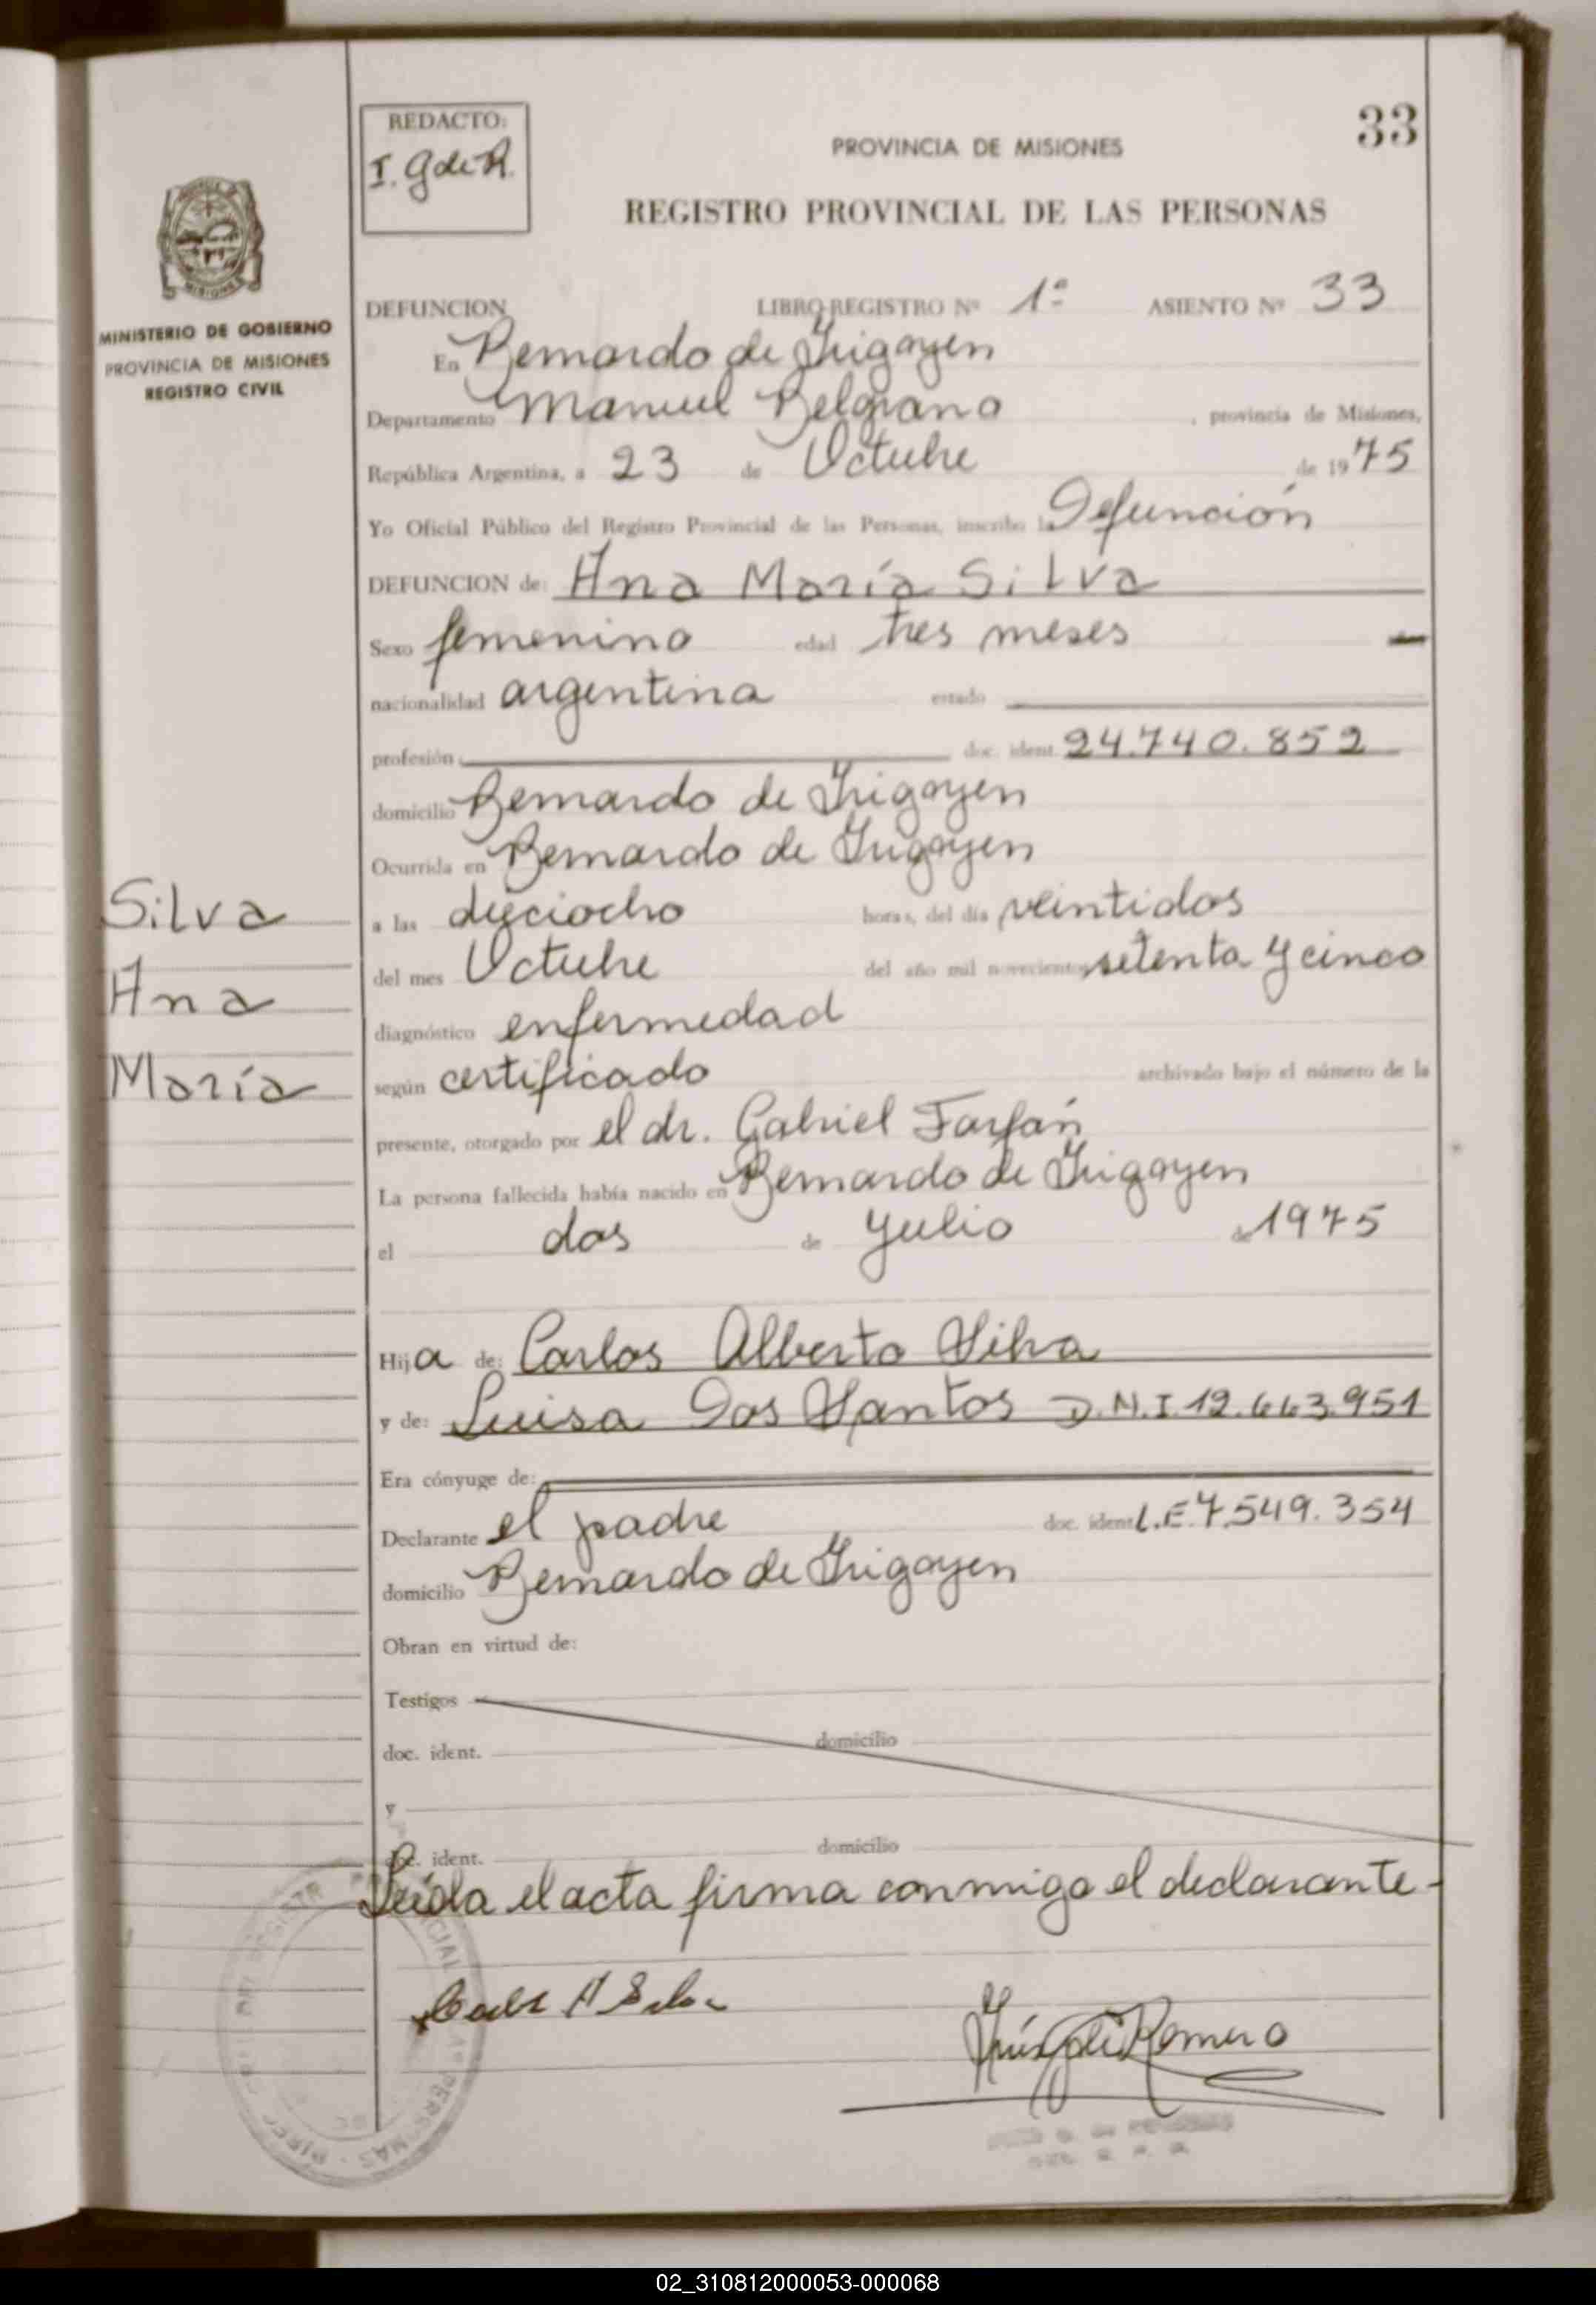 33
REDACTO:
I. G de R.
PROVINCIA DE MISIONES
REGISTRO PROVINCIAL DE LAS PERSONAS
MISIONES
MINISTERIO DE GOBIERNO
PROVINCIA DE MISIONES
REGISTRO CIVIL
DEFUNCION LIBRO-REGISTRO Nº 1º ASIENTO Nº 33
En Bernardo de Irigoyen
Departamento Manuel Belgrano, provincia de Misiones,
República Argentina, a 23 de Octubre de 1975
Yo Oficial Público del Registro Provincial de las Personas, inscribo la Defunción
DEFUNCION de: Ana María Silva
Sexo femenino edad tres meses
nacionalidad argentina estado
profesión doc. ident. 24.740.852
domicilio Bernardo de Irigoyen
Ocurrida en Bernardo de Irigoyen
a las dieciocho horas, del día veintidos
del mes Octubre del año mil novecientos setenta y cinco
diagnóstico enfermedad
según certificado archivado bajo el número de la
presente, otorgado por el dr. Gabriel Farfán
La persona fallecida había nacido en Bernardo de Irigoyen
el dos de Julio de 1975
Silva
Ana
María
Hija de: Carlos Alberto Silva
y de: Luisa Dos Santos D.N.I. 12.663.951
Era cónyuge de:
Declarante el padre doc. ident. L.E. 7.549.354
domicilio Bernardo de Irigoyen
Obran en virtud de:
Testigos
doc. ident. domicilio
y
doc. ident. domicilio
Leída el acta firma conmigo el declarante-
02_310812000053-000068